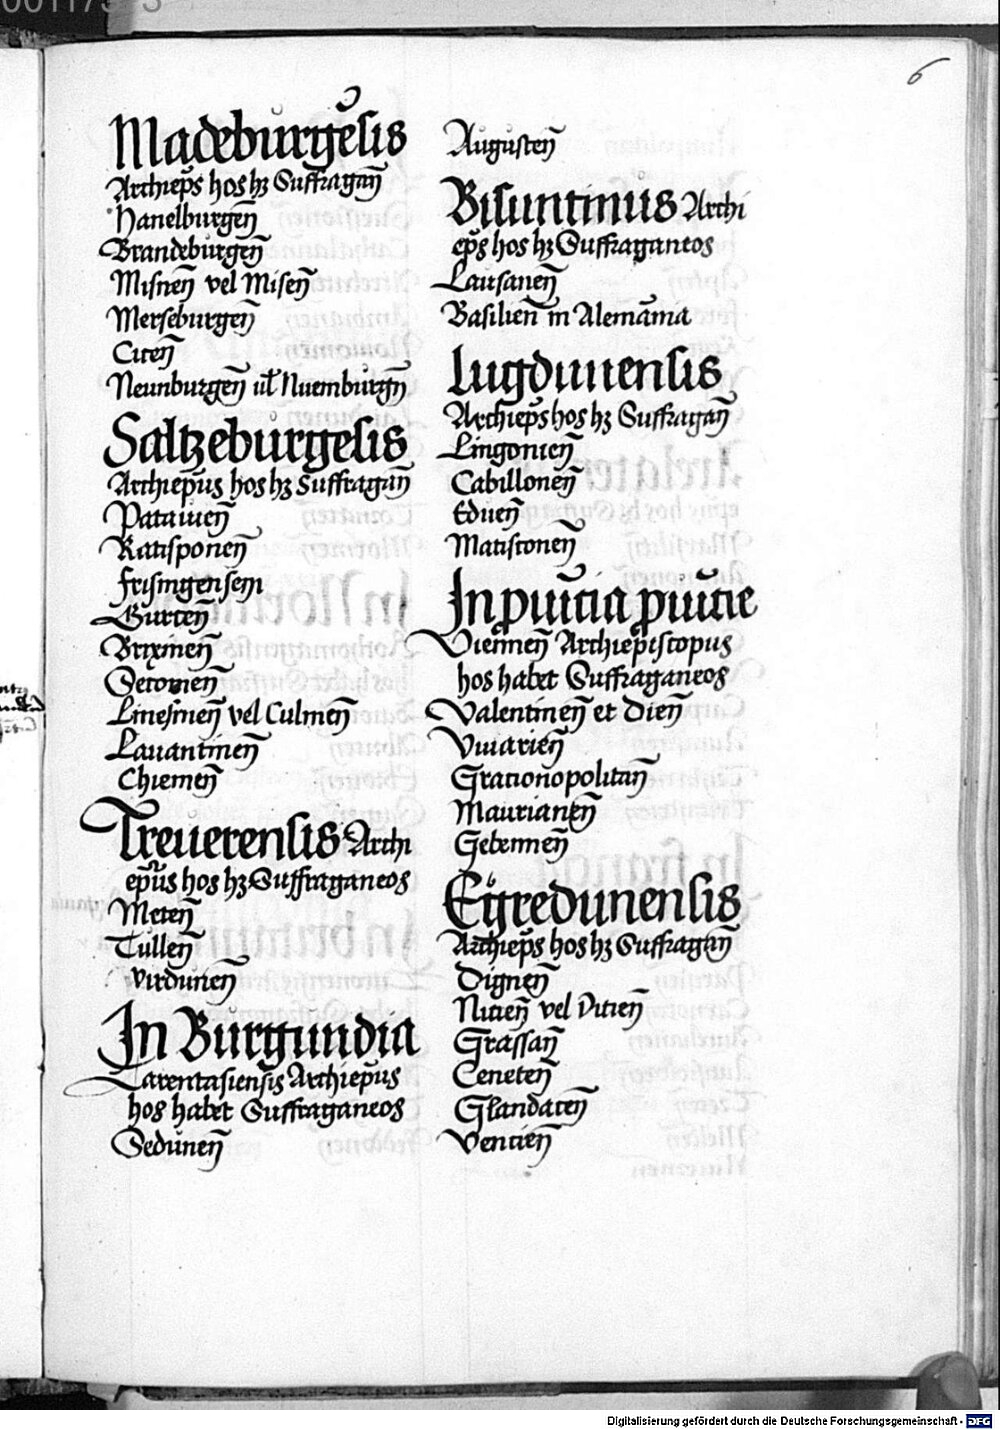 6
Madeburgēsis
Archiep̄s hos hꝫ Suffragan̄
Hanelburgen̄
Brandeburgen̄
Misnen̄ vel Misen̄
Merseburgen̄
Citen̄
Neunburgen̄ ul̄ Nuemburgn̄
Saltzeburgesis
Archiep̄us hos hꝫ Suffragan̄
Patauien̄
Ratisponen̄
frisingensem
Gurcen̄
Brixinen̄
Secouien̄
Linesmen̄ vel Culmen̄
Lauantinen̄
Chiemen̄
Treuerensis Archi
ep̄us hos hꝫ Suffraganeos
Meten̄
Tullen̄
virdunen̄
In Burgundia
Tarentasiensis Archiep̄us
hos habet Suffraganeos
Sedunen̄
Augusten̄
Bisuntinus Archi
ep̄s hos hꝫ Suffraganeos
Lausanen̄
Basilien̄ in Alemāma
Lugdunensis
Archiep̄s hos hꝫ Suffragan̄
Lingonien̄
Cabillonen̄
Eduen̄
Matisconen̄
In puīcia puīcie
Viennen̄ Archiepiscopus
hos habet Suffraganeos
Valentinen̄ et Dien̄
Viuarien̄
Gracionopolitan̄
Maurianen̄
Gebennen̄
Egredunensis
Archiep̄s hos hꝫ Suffragan̄
Dignen̄
Nicien̄ vel Vicien̄
Grassan̄
Ceneten̄
Glandacen̄
Vencien̄
Digitalisierung gefördert durch die Deutsche Forschungsgemeinschaft - DFG